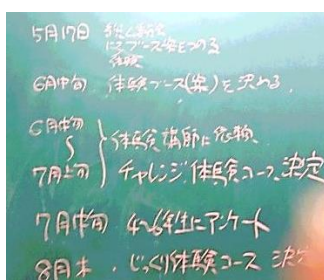 5月17日
体験
6月中旬 体験ブース(案)を決める。
6月中旬
〜
7月上旬
体験講師に依頼
チャレンジ体験コース決定
7月中旬 4〜6年生にアンケート
8月末 . じっくり体験コース 決定